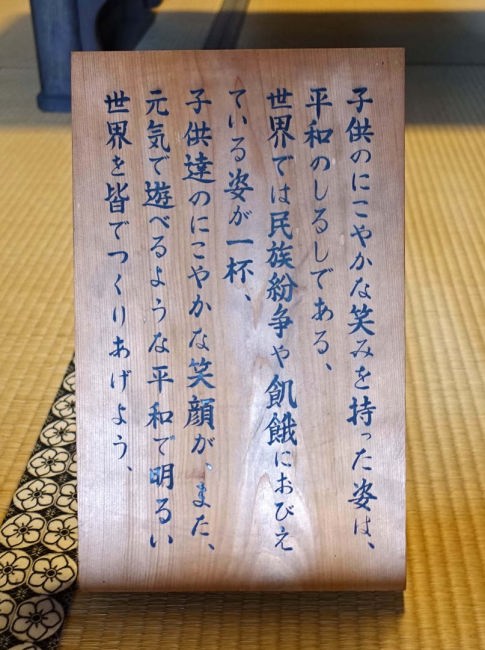 子供のにこやかな笑みを持った姿は、
平和のしるしである、
世界では民族紛争や飢餓におびえ
ている姿が一杯、
子供達のにこやかな笑顔が、また、
元気で遊べるような平和で明るい
世界を皆でつくりあげよう、